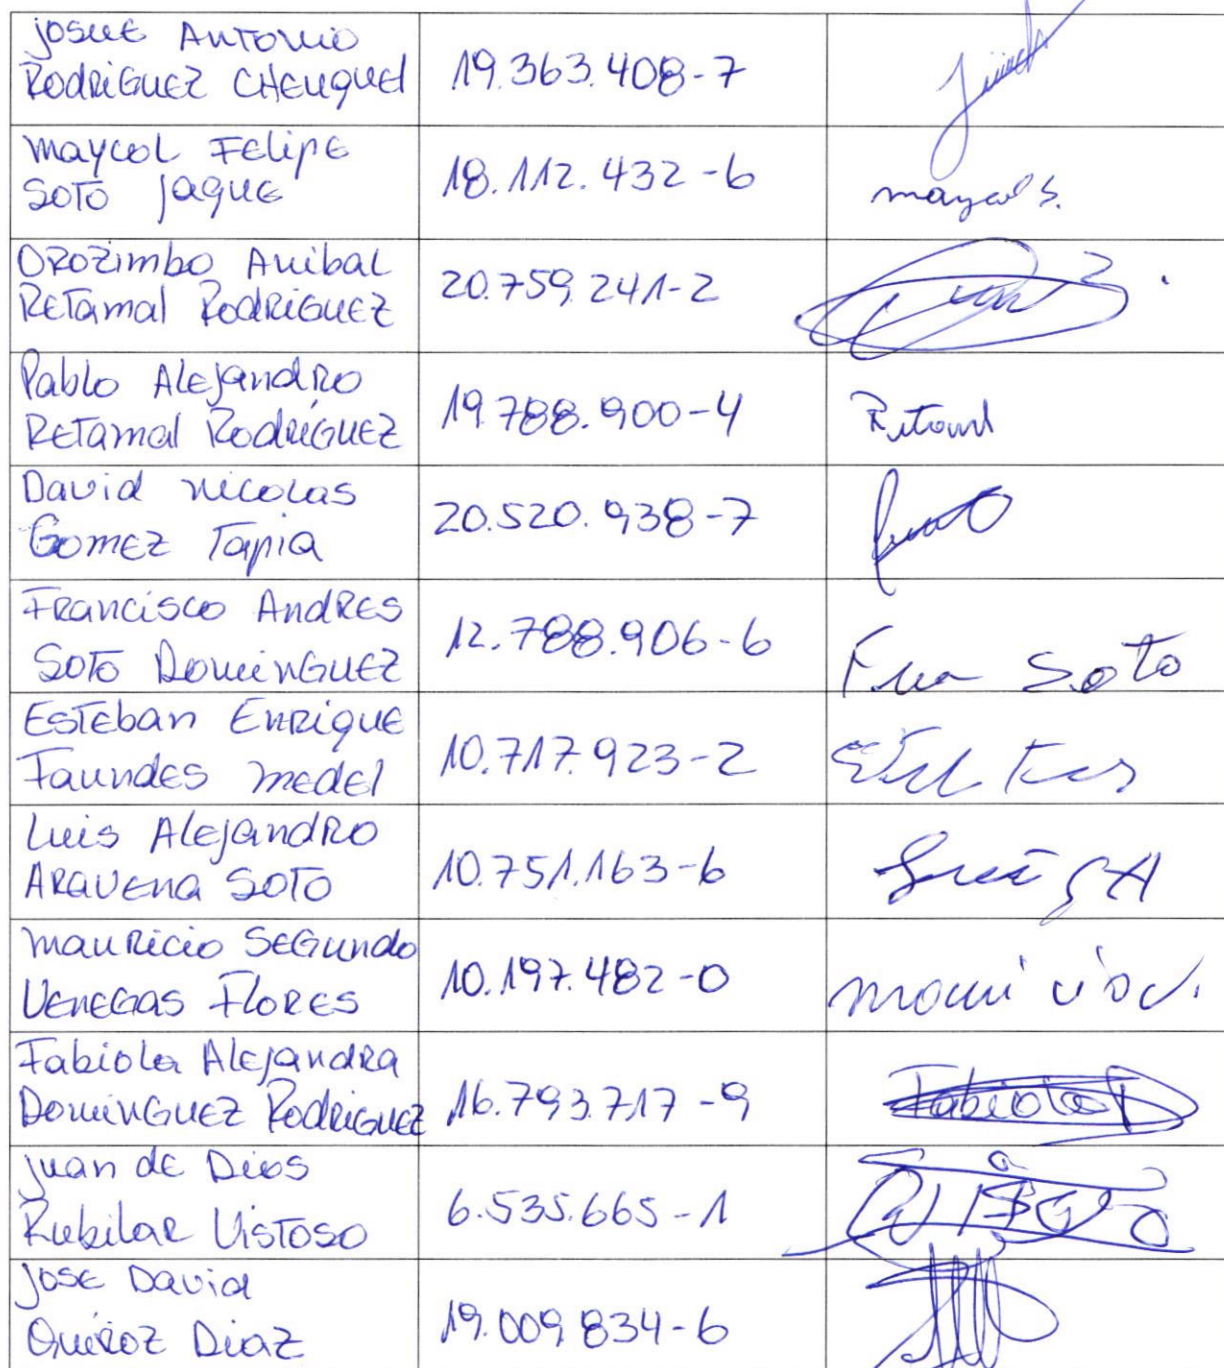 Josue Antonio
Rodriguez Cheuquel 19.363.408-7
Maycol Felipe
Soto Jaque 18.112.432-6 maycol s.
Orozimbo Anibal
Retamal Rodriguez 20.759.241-2
Pablo Alejandro
Retamal Rodriguez 19.788.900-4 Retaml
David Nicolas
Gomez Tapia 20.520.938-7
Francisco Andres
Soto Dominguez 12.788.906-6 Fran Soto
Esteban Enrique
Faundes Medel 10.717.923-2
Luis Alejandro
Aravena Soto 10.751.163-6 Luis SA
Mauricio Segundo
Venegas Flores 10.197.482-0
Fabiola Alejandra
Dominguez Rodriguez 16.793.717-9 Fabiola D
Juan de Dios
Rubilar Vistoso 6.535.665-1
Jose David
Quiroz Diaz 19.009.834-6